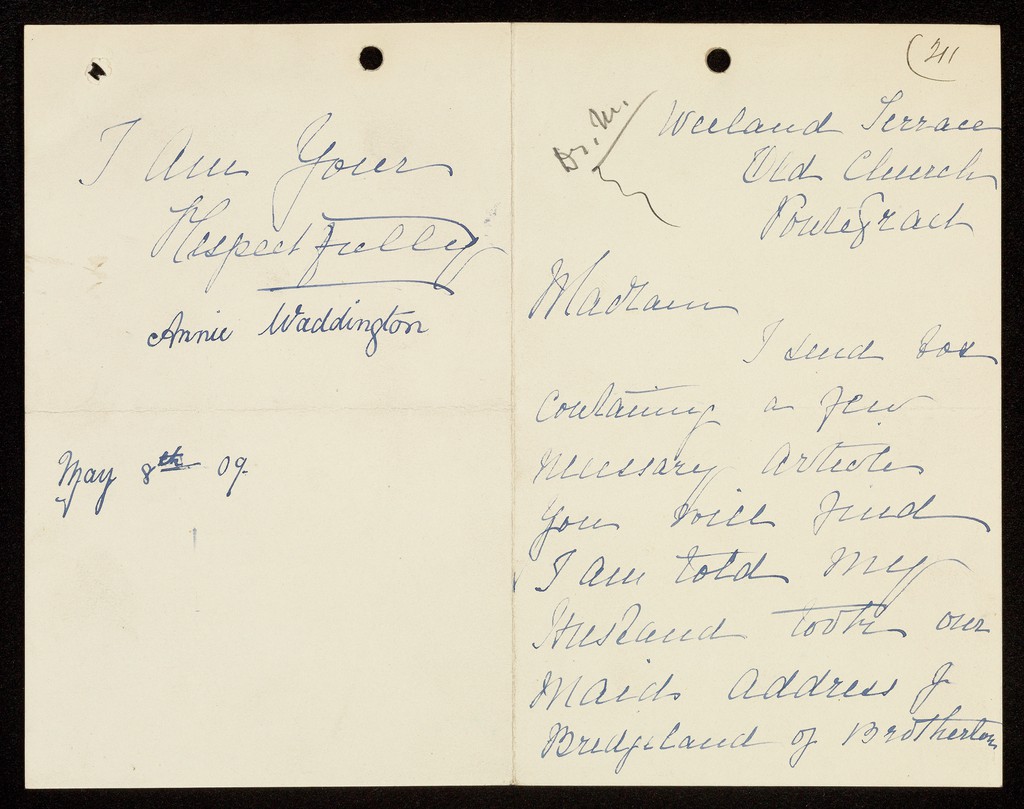 (211
Dr. M.
Weeland Terrace
Old Church
Pontefract
Madam
I send box
containing a few
necessary Article
You will find
I am told My
Husband took our
Maids address J
Bredgeland of Brotherton
I Am Your
Respectfully
Annie Waddington
May 8th 09.